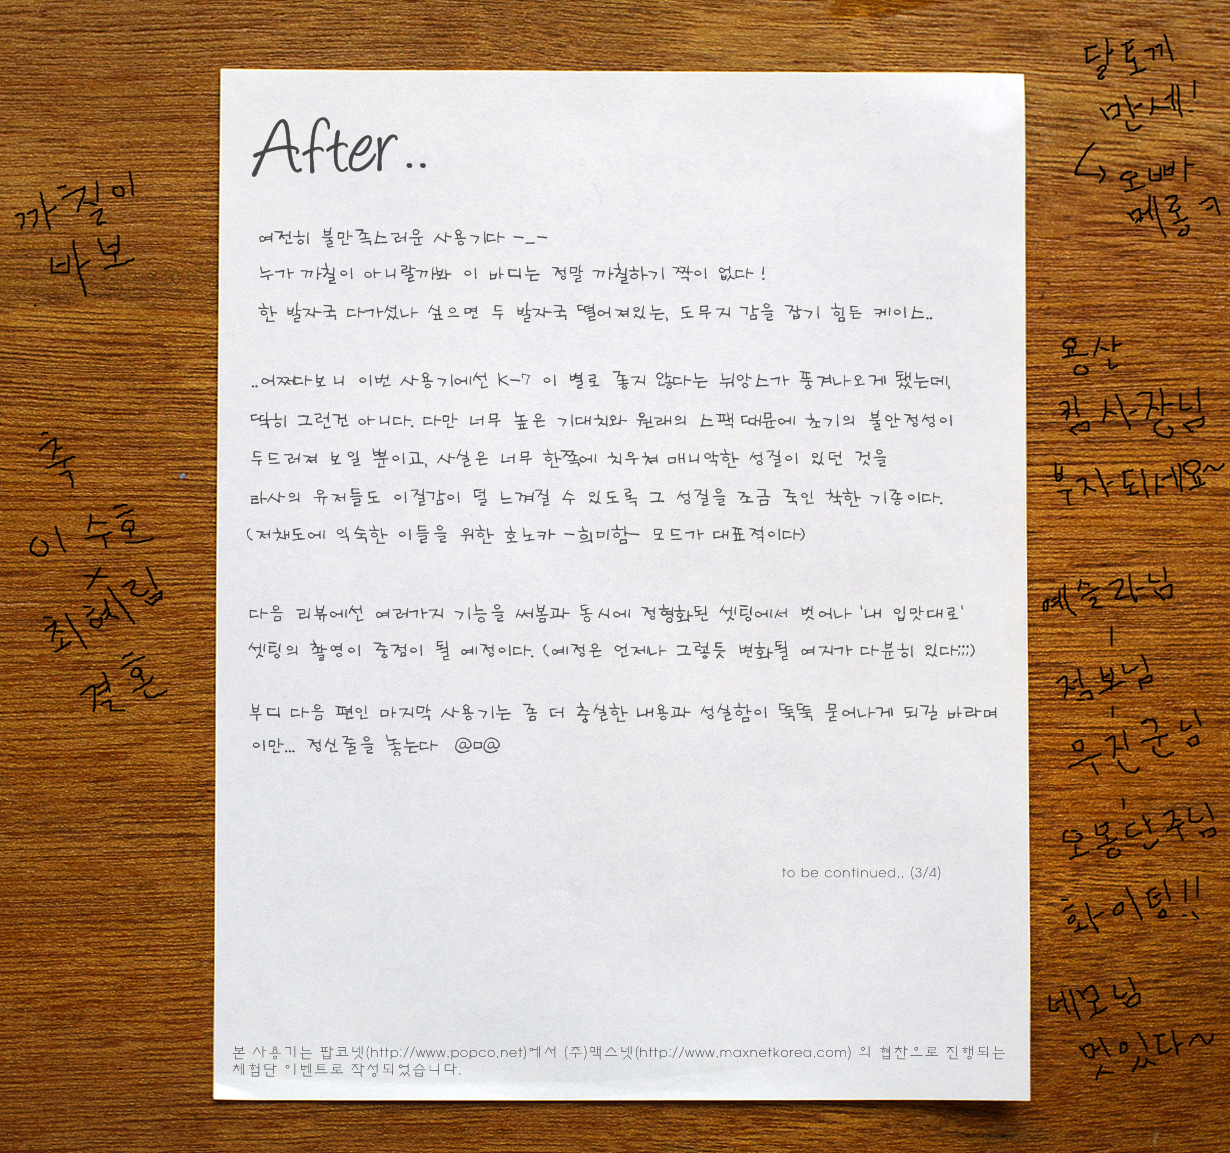 After..
여전히 불만족스러운 사용기다 -_-
누가 까칠이 아니랄까봐 이 바디는 정말 까칠하기 짝이 없다 !
한 발자국 다가섰나 싶으면 두 발자국 떨어져있는, 도무지 감을 잡기 힘든 케이스..
..어쩌다보니 이번 사용기에선 K-7 이 별로 좋지 않다는 뉘앙스가 풍겨나오게 됐는데,
딱히 그런건 아니다. 다만 너무 높은 기대치와 원래의 스팩 때문에 초기의 불안정성이
두드러져 보일 뿐이고, 사실은 너무 한쪽에 치우쳐 매니악한 성질이 있던 것을
타사의 유저들도 이질감이 덜 느껴질 수 있도록 그 성질을 조금 죽인 착한 기종이다.
(저채도에 익숙한 이들을 위한 호노카 -희미함- 모드가 대표적이다)
다음 리뷰에선 여러가지 기능을 써봄과 동시에 정형화된 셋팅에서 벗어나 '내 입맛대로'
셋팅의 촬영이 중점이 될 예정이다. (예정은 언제나 그렇듯 변화될 여지가 다분히 있다;;;)
부디 다음 편인 마지막 사용기는 좀 더 충실한 내용과 성실함이 뚝뚝 묻어나게 되길 바라며
이만... 정신줄을 놓는다 @ㅁ@
to be continued.. (3/4)
본 사용기는 팝코넷(http://www.popco.net)에서 (주)맥스넷(http://www.maxnetkorea.com) 의 협찬으로 진행되는
체험단 이벤트로 작성되었습니다.
까칠이
바보
축
이 수호
x
최혜림
결혼
달토끼
만세!
오빠
메롱 ㅋ
용산
킴 사장님
부자되세요~
예슬라님
점보님
무진군님
오몽단주님
화이팅!!
네모님
멋있다~